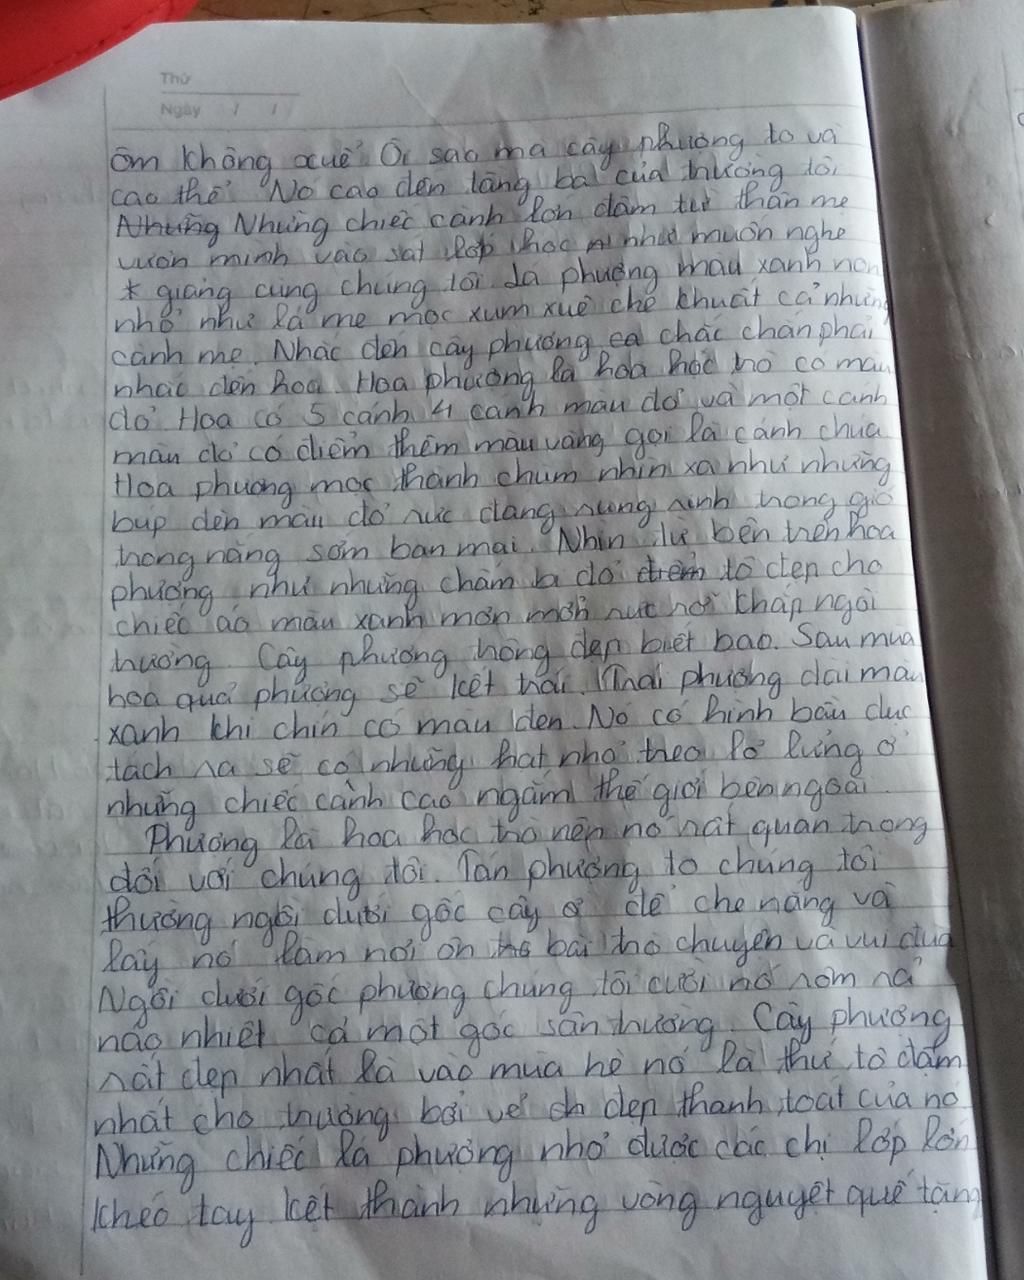 Thứ
Ngày / /
ôm không xuể. Ôi sao mà cây phượng to và
cao thế. Nó cao đến tầng ba của trường tôi
Những Những chiếc cành lớn đâm từ thân mẹ
vươn mình vào sát lớp học như muốn nghe
* giảng cùng chúng tôi. Lá phượng màu xanh non
nhỏ như lá me mọc xum xuê che khuất cả những
cành mẹ. Nhắc đến cây phượng ea chắc chắn phải
nhắc đến hoa. Hoa phượng là hoa học trò có màu
đỏ. Hoa có 5 cánh 4 cánh màu đỏ và một cánh
màu đỏ có điểm thêm màu vàng gọi là cánh chúa
Hoa phượng mọc thành chùm nhìn xa như những
búp đèn màu đỏ rực đang rung rinh trong gió
trong nắng sớm ban mai. Nhìn từ bên trên hoa
phượng như những chấm bi đỏ điểm tô đẹp cho
chiếc áo màu xanh mơn mởn rực rỡ khắp ngôi
trường. Cây phượng trông đẹp biết bao. Sau mùa
hoa quả phượng sẽ kết trái. Trái phượng dài màu
xanh khi chín có màu đen. Nó có hình bầu dục
tách ra sẽ có những hạt nhỏ treo lơ lửng ở
những chiếc cành cao ngắm thế giới bên ngoài.
Phượng là hoa học trò nên nó rất quan trọng
đối với chúng tôi. Tán phượng to chúng tôi
thường ngồi dưới gốc cây ở để che nắng và
lấy nó làm nơi ôn bài trò chuyện và vui đùa
Ngồi dưới gốc phượng chúng tôi cười nó rôm rả
náo nhiệt cả một góc sân trường. Cây phượng
rất đẹp nhất là vào mùa hè nó là thứ tô đậm
nhất cho trường bởi vẻ đẹp thanh toát của nó
Những chiếc lá phượng nhỏ được các chị lớp lớn
khéo tay kết thành những vòng nguyệt quế tặng